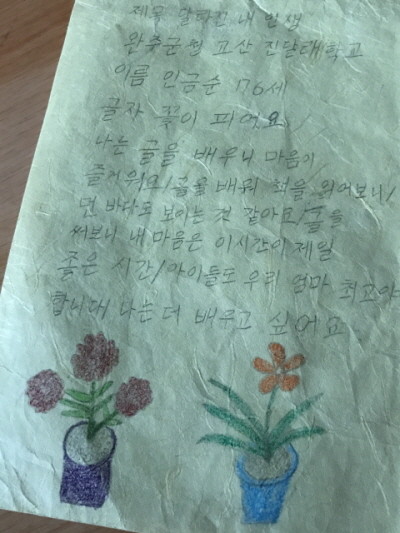 제목 달라진 내 인생
완주군청 고산 진달래학교
이름 인금순 76세
글자 꽃이 피어요/
나는 글을 배우니 마음이
즐거워요/글을 배워 책을 읽어보니/
먼 바다도 보이는 것 같아요/글을
써보니 내 마음은 이시간이 제일
좋은 시간/아이들도 우리 엄마 최고야
합니다/나는 더 배우고 싶어요